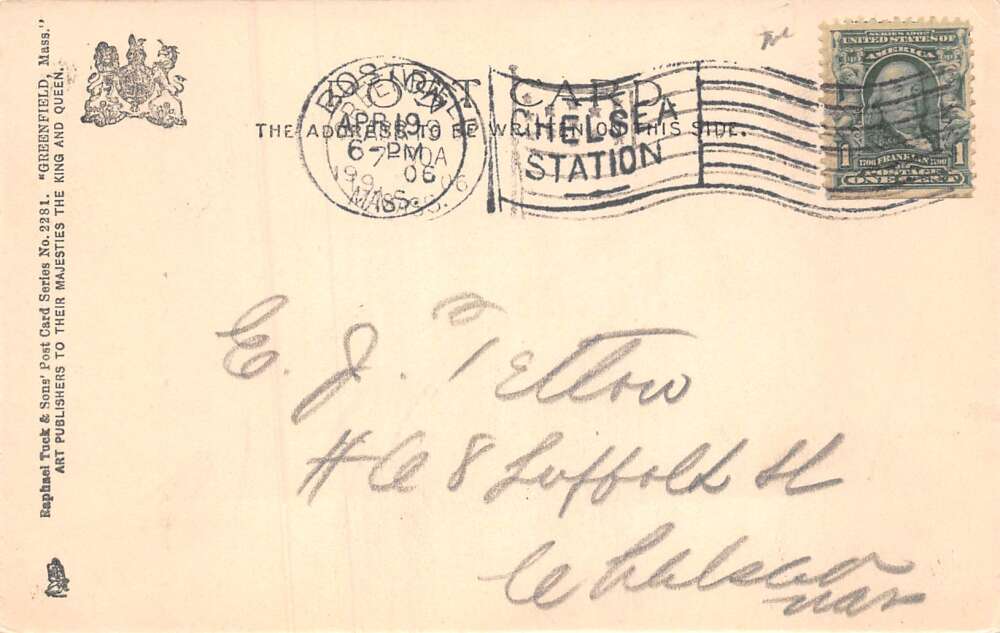 POST CARD
THE ADDRESS TO BE WRITTEN ON THIS SIDE.
Raphael Tuck & Sons' Post Card Series No. 2281. "GREENFIELD, Mass."
ART PUBLISHERS TO THEIR MAJESTIES THE KING AND QUEEN.
BOSTON
APR 19
6-PM
06
MASS.
CHELSEA
STATION
SERIES 1902
UNITED STATES OF
AMERICA
1 1706 FRANKLIN 1790 1
POSTAGE
ONE CENT
E. J. Tetlow
#68 Suffolk St
Chelsea
Mass